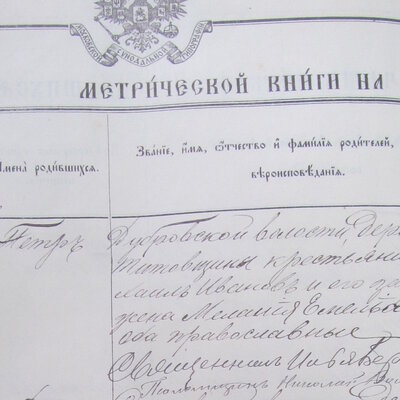 МОСКОВСКОЙ СИНОДАЛЬНОЙ ТИПОГРАФІИ
МЕТРИ́ЧЕСКОЙ КНИ́ГИ НА
Имена̀ роди́вшихся.
Зва́нїе, и́мя, о́тчество и҆ фами́лїя роди́телей,
вѣроисповѣ́данїя.
Петръ
Дубровской волости, Дер
Титовщины крестьяни
хаилъ Ивановъ и его
жена Меланія Емелья
оба православные
Священникъ Илья
Николай